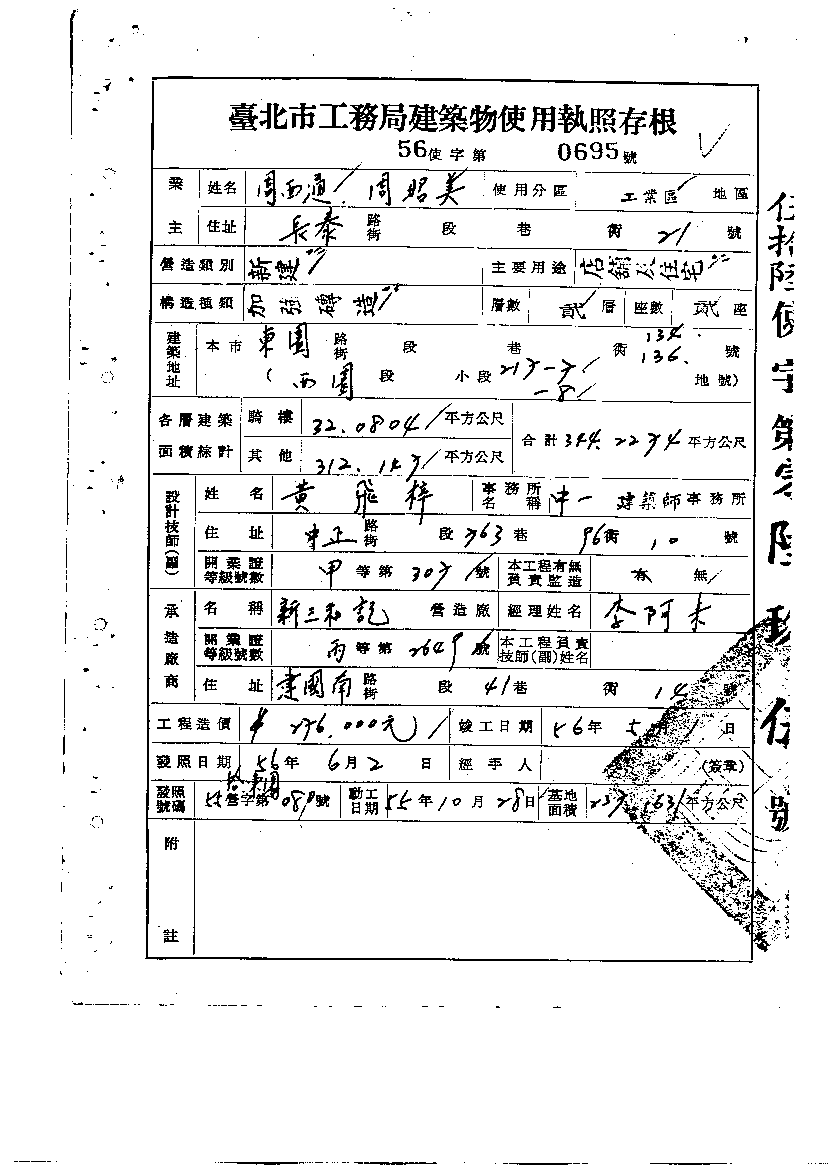 臺北市工務局建築物使用執照存根
56使字第 0695號
業主 姓名 周西通 周昭美 使用分區 工業區 地區
住址 長泰 路街 段 巷 衖 21 號
營造類別 新建 主要用途 店舖及住宅
構造種類 加強磚造 層數 貳 層 座數 貳 座
建築地址 本市 東園 路街 段 巷 衖 134. 136. 號
( 西園 段 小段 地號)
各層建築面積綜計 騎樓 32.0804 平方公尺 合計 344.2234 平方公尺
其他 平方公尺
設計技師(副) 姓名 黃飛梓 事務所名稱 中一 建築師事務所
住址 中正 路街 段 巷 96衖 10 號
開業證等級號數 甲 等第 號 本工程有無負責監造 有 無
承造廠商 名稱 新三和記 營造廠 經理姓名 李阿木
開業證等級號數 丙 等第 號 本工程負責技師(副)姓名
住址 建國南 路街 段 41巷 衖 14 號
工程造價 竣工日期 56年 5月 日
發照日期 56年 6月2 日 經手人 (簽章)
發照號碼 55營字第 號 動工日期 55年10月28日 基地面積 平方公尺
附註
伍拾陸使字第零陸玖伍號